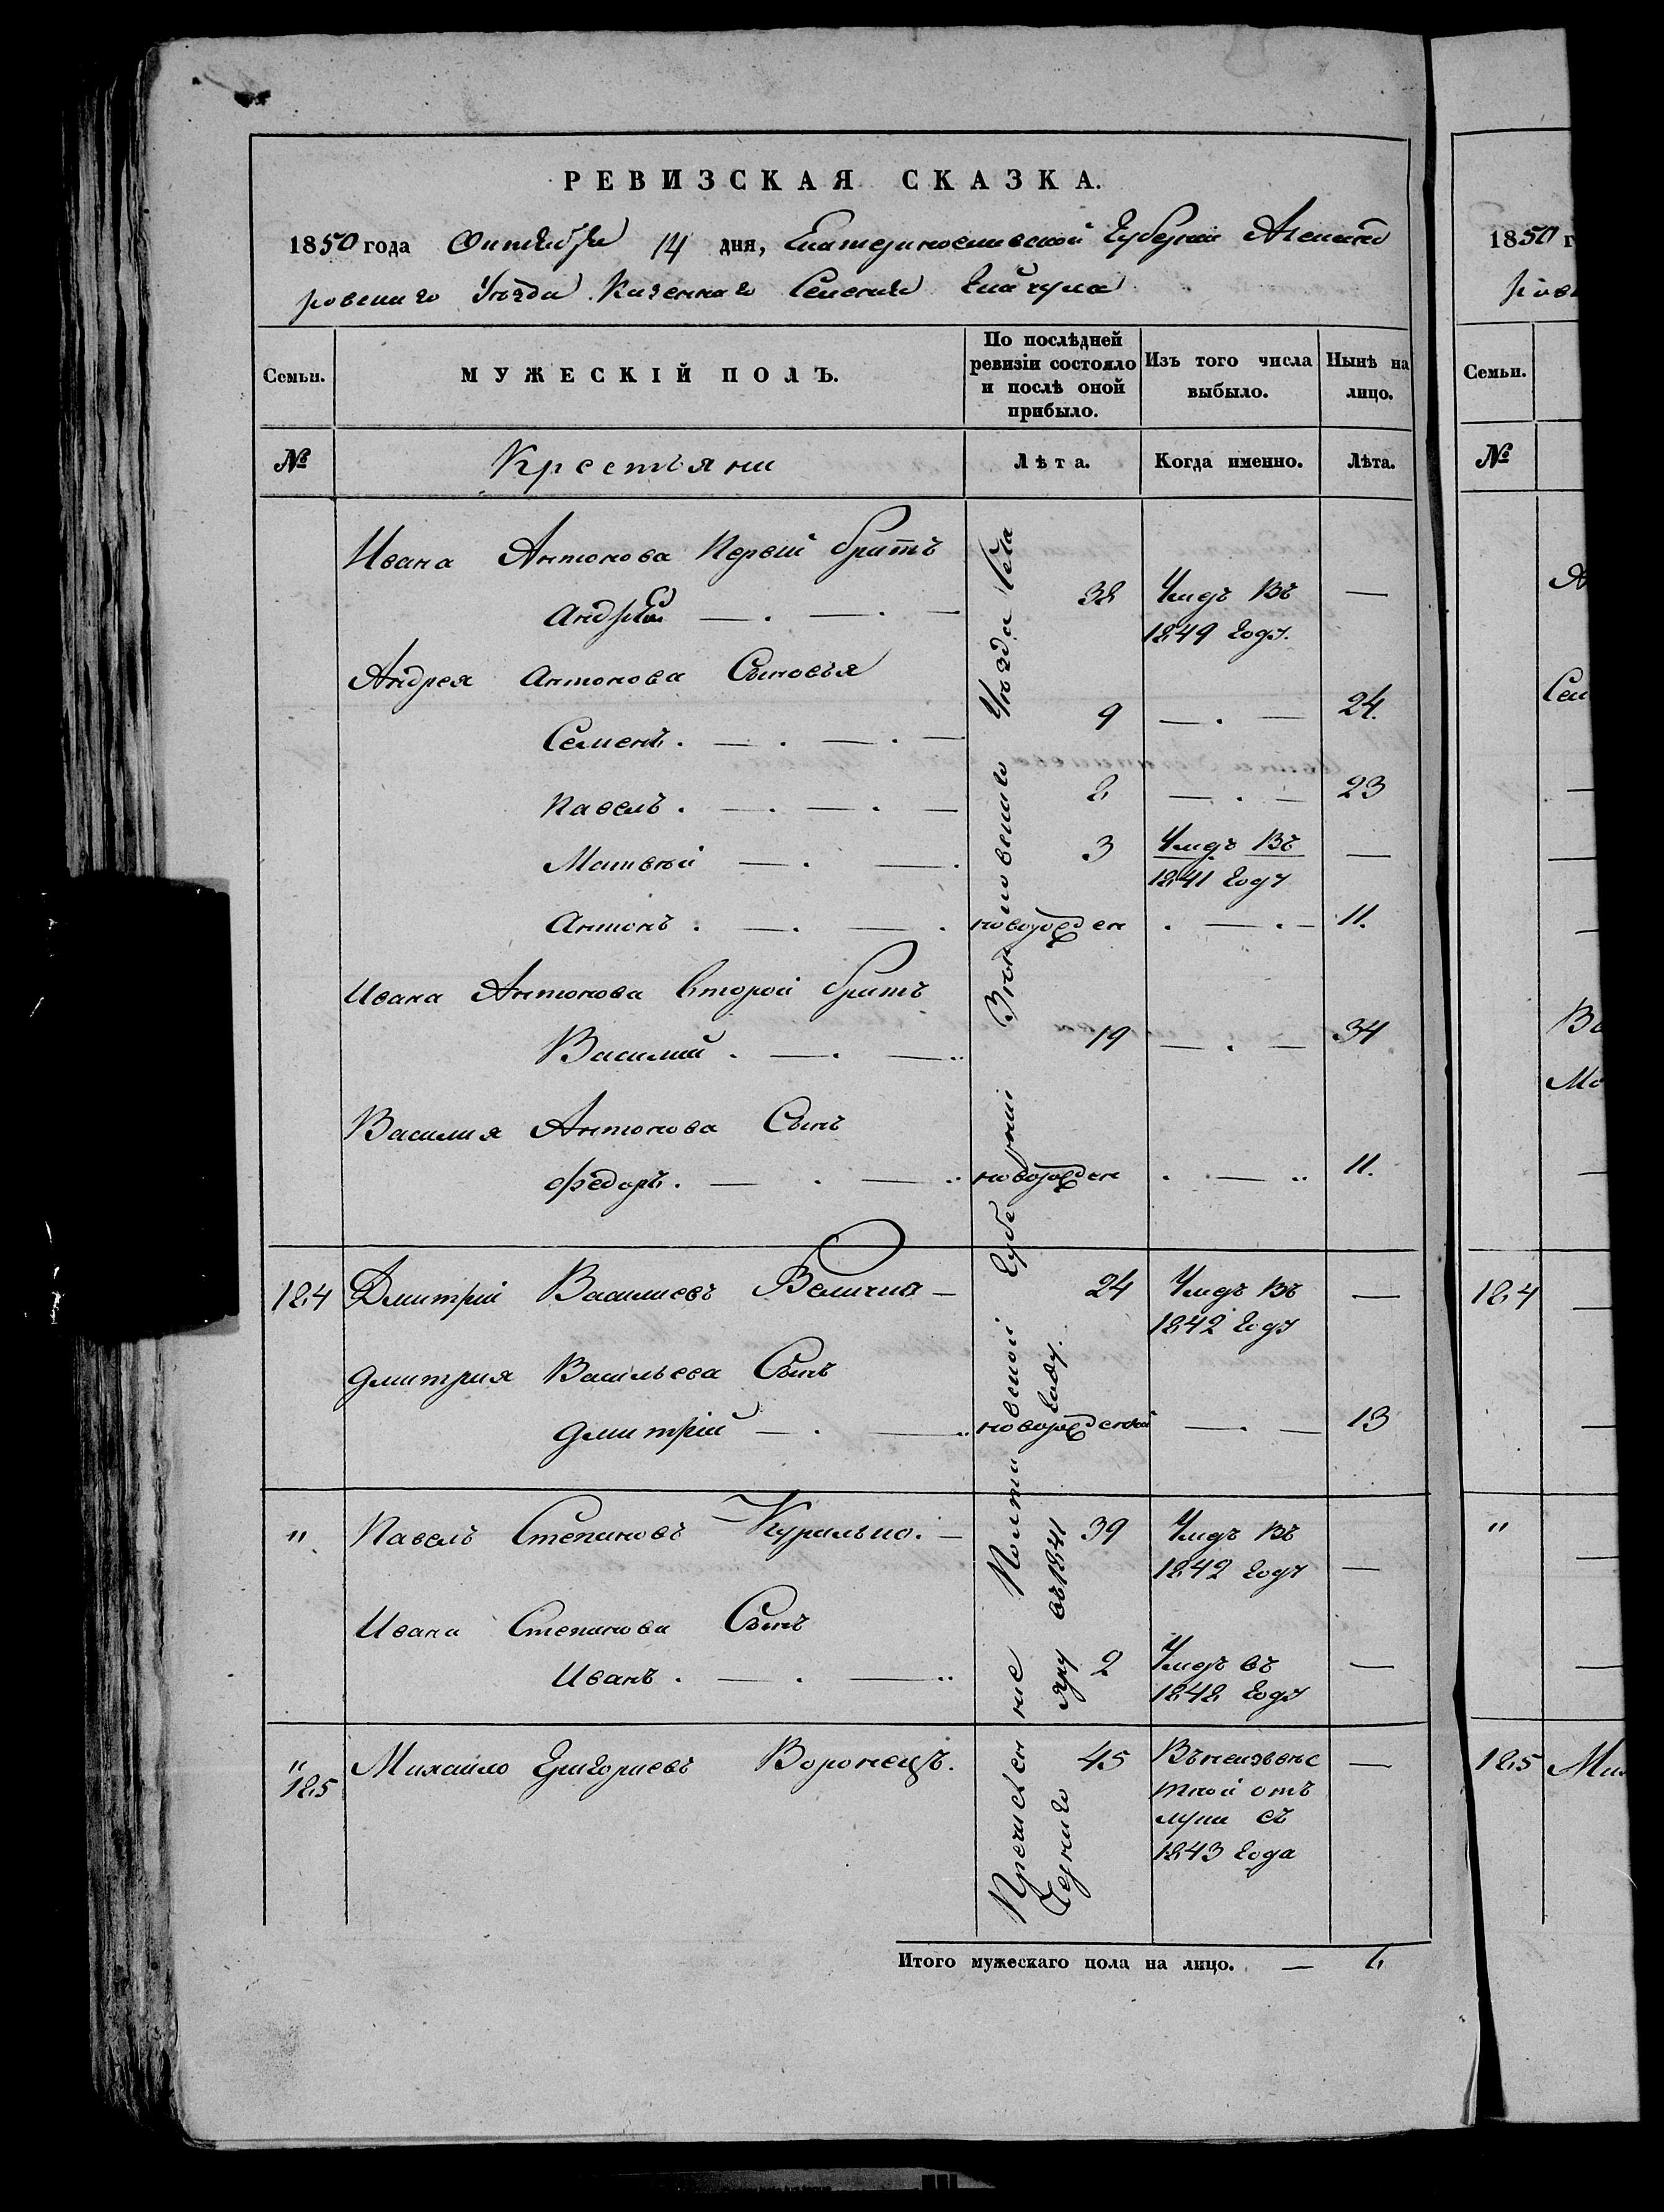 РЕВИЗСКАЯ СКАЗКА.
1850 года Октября 14 дня, Екатеринославской Губернии Александ
ровскаго Уѣзда Казеннаго Селения Гайчула
Семьи. МУЖЕСКІЙ ПОЛЪ. По послѣдней ревизіи состояло и послѣ оной прибыло. Изъ того числа выбыло. Нынѣ на лицо.
№ Крестьяни Лѣта. Когда именно. Лѣта.
Ивана Антонова Первий братъ
Андрей 38 Умеръ въ —
1849 году.
Андрея Антонова Сыновья
Семенъ. 9 — . — 24.
Павелъ. 8 — . — 23
Матвѣй 3 Умеръ въ —
1841 году
Антонъ. новорожден . — . — 11.
Ивана Антонова второй братъ
Василий. 19 — . — 34
Василия Антонова Сынъ
Федоръ. новорожден . — 11.
184 Дмитрій Василиевъ Величко 24 Умеръ въ —
1842 году
Дмитрия Васильева Сынъ
Дмитрій новорожденній — . — 13
" Павелъ Степановъ Курилько. 39 Умеръ въ
1842 году —
Ивана Степанова Сынъ
Иванъ. 2 Умеръ въ —
1848 году
"
185 Михайло Григориевъ Воронецъ. 45 Въ неизвѣс
тной отъ
лучки съ
1843 года —
Полтавской Губернии Зѣньковскаго Уѣзда Села
въ 1841 году.
Итого мужескаго пола на лицо. —
1850 г
ров
Семьи.
№
Сем
Ва
184
"
185 Ми